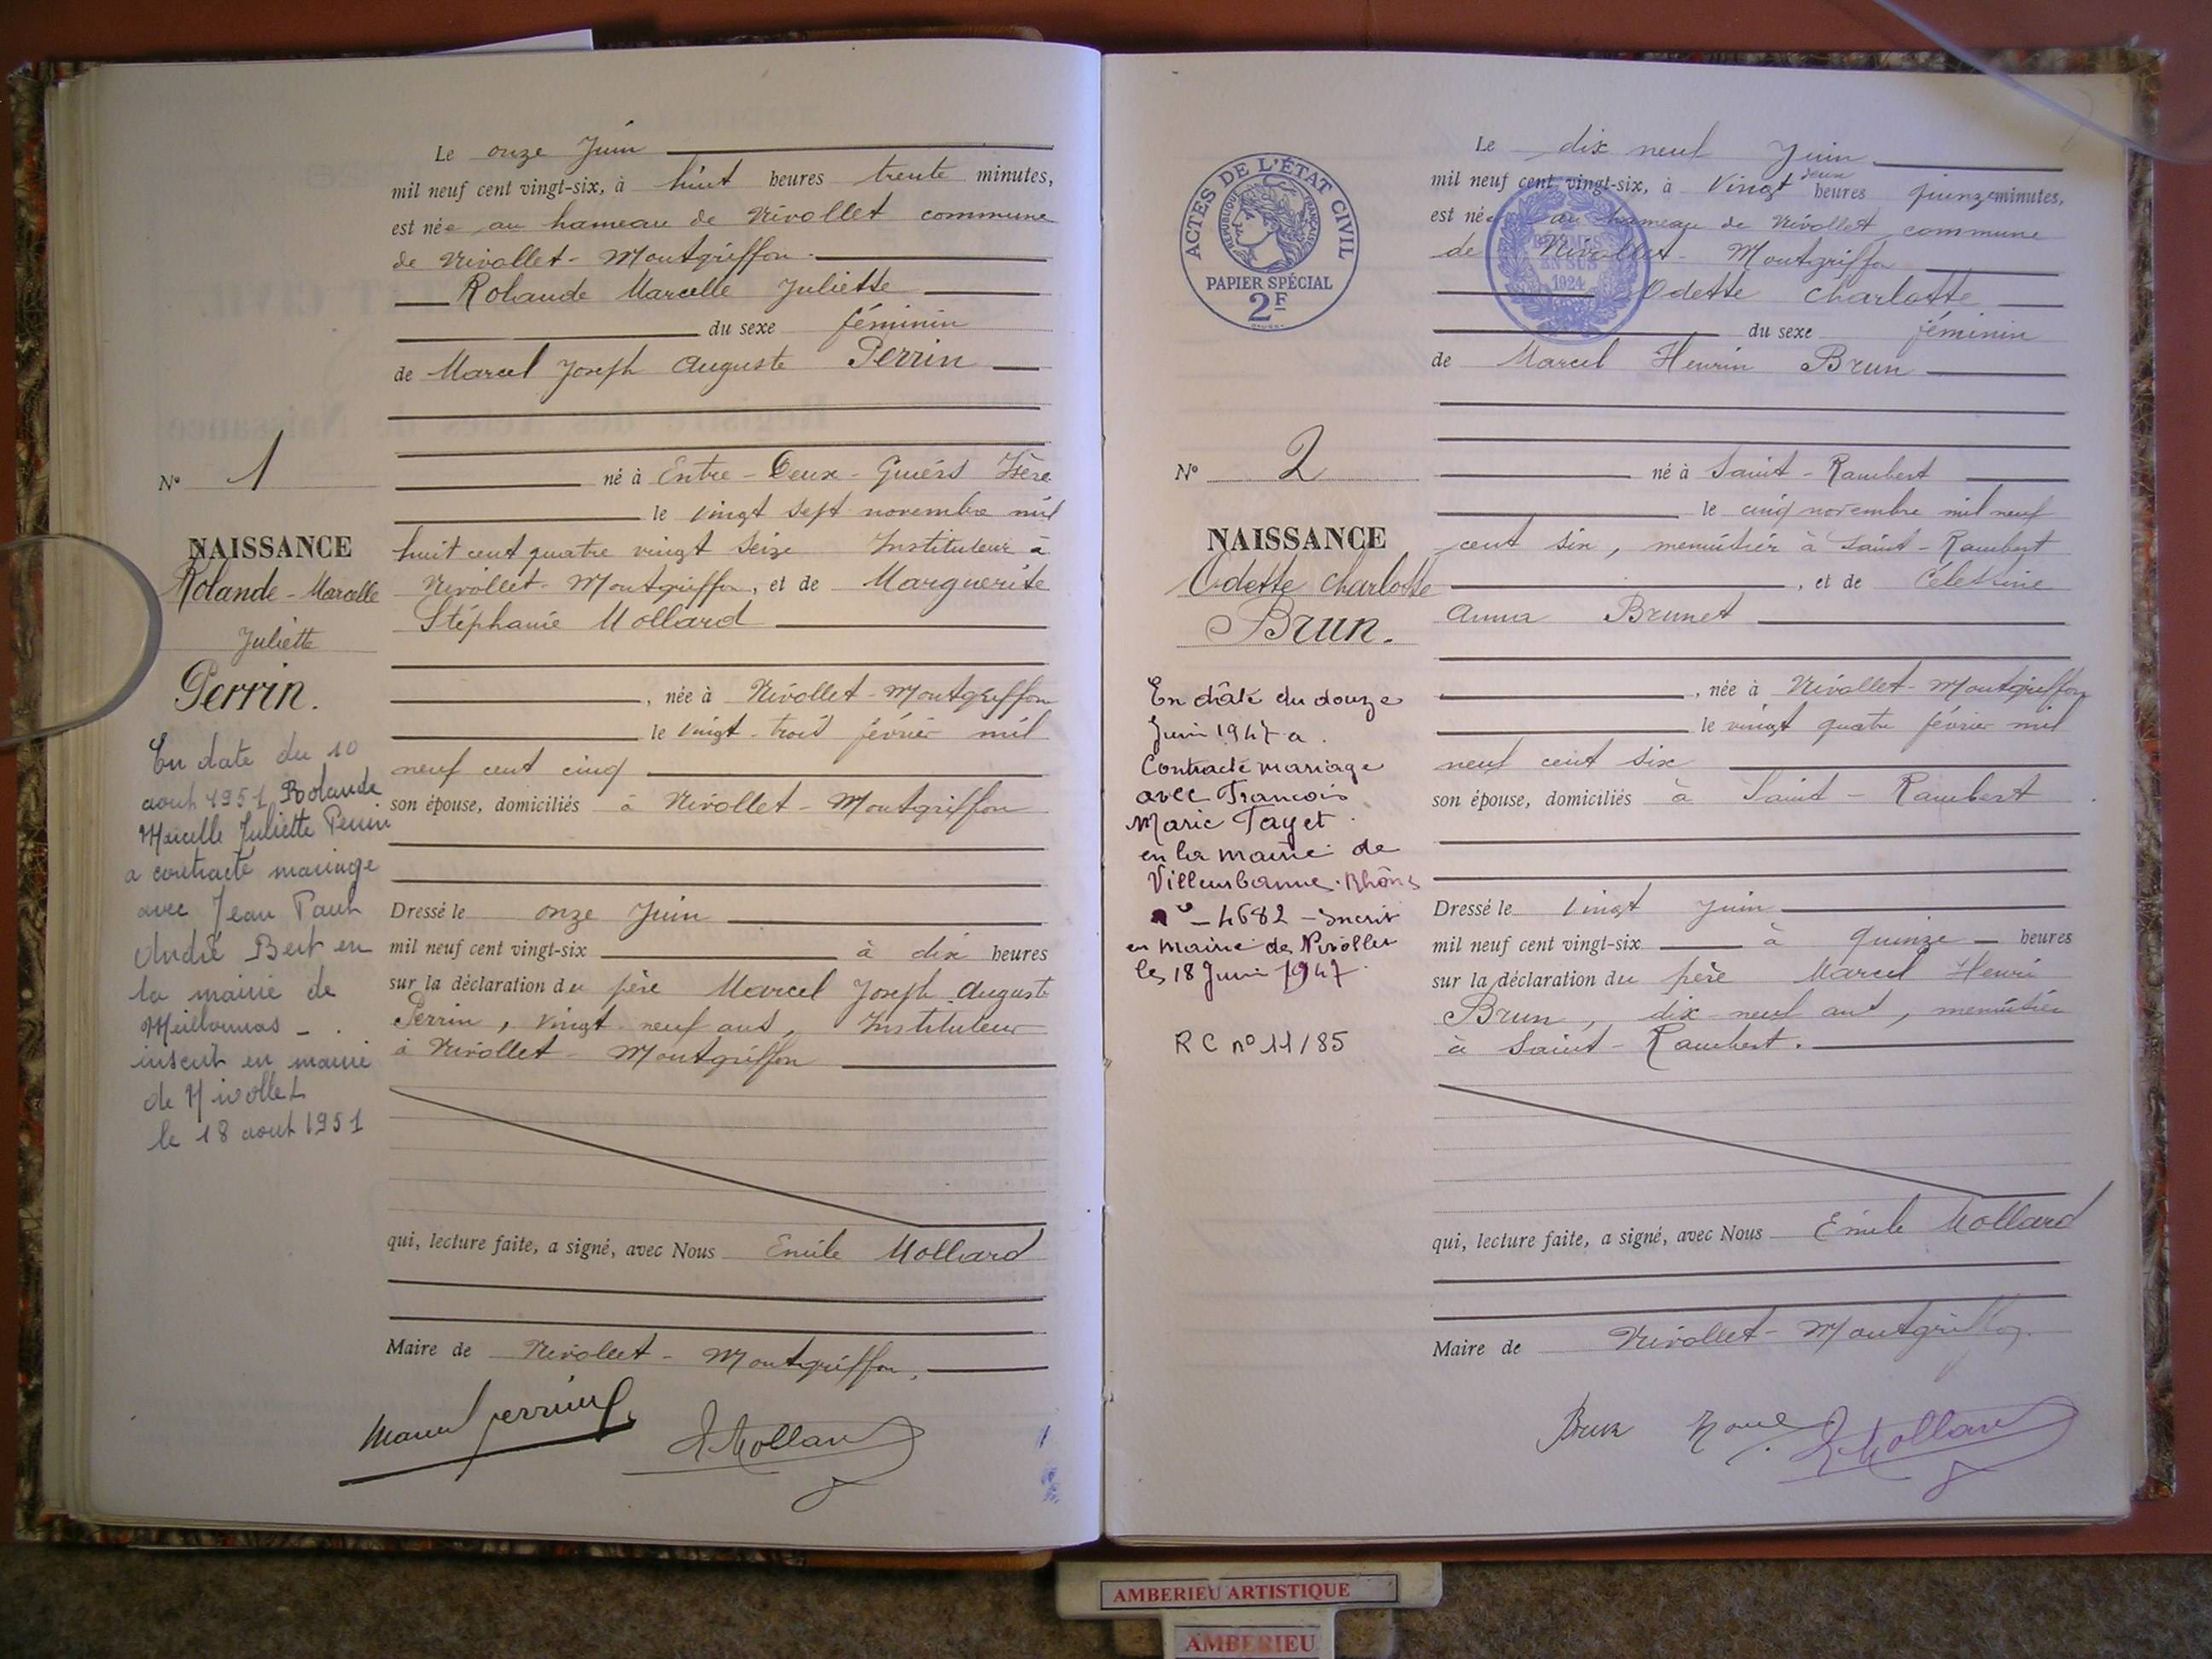 Le onze Juin
mil neuf cent vingt-six, à huit heures trente minutes,
est née au hameau de Nivollet commune
de Nivollet-Montgriffon.
Rolande Marcelle Juliette
du sexe féminin
de Marcel Joseph Auguste Perrin
né à Entre-Deux-Guiers Isère
le vingt sept novembre mil
huit cent quatre vingt seize Instituteur à
Nivollet-Montgriffon, et de Marguerite
Stéphanie Mollard
, née à Nivollet-Montgriffon
le vingt-trois février mil
neuf cent cinq
son épouse, domiciliés à Nivollet-Montgriffon
Dressé le onze Juin
mil neuf cent vingt-six à dix heures
sur la déclaration du père Marcel Joseph Auguste
Perrin, vingt neuf ans, Instituteur
à Nivollet-Montgriffon
qui, lecture faite, a signé, avec Nous Emile Mollard
Maire de Nivollet-Montgriffon.
Marcel Perrin
E Mollard
N° 1
NAISSANCE
Rolande-Marcelle
Juliette
Perrin.
En date du 10
aout 1951 Rolande
Marcelle Juliette Perrin
a contracté mariage
avec Jean Paul
André Bert en
la mairie de
Meillonnas - .
inscrit en mairie
de Nivollet
le 18 aout 1951
ACTES DE L'ÉTAT CIVIL
RÉPUBLIQUE FRANÇAISE
PAPIER SPÉCIAL
2F
Le dix neuf Juin
deux
mil neuf cent vingt-six, à Vingt heures quinze minutes,
est née au hameau de Nivollet commune
de Nivollet-Montgriffon
Odette Charlotte
du sexe féminin
de Marcel Henrin Brun
2
DÉCIMES
EN SUS
1924
né à Saint-Rambert
le cinq novembre mil neuf
cent six, menuisier à Saint-Rambert
, et de Célestine
Anna Brunet
, née à Nivollet-Montgriffon
le vingt quatre février mil
neuf cent six
son épouse, domiciliés à Saint-Rambert
Dressé le Vingt Juin
mil neuf cent vingt-six à quinze heures
sur la déclaration du père Marcel Henri
Brun, dix-neuf ans, menuisier
à Saint-Rambert.
qui, lecture faite, a signé, avec Nous Emile Mollard
Maire de Nivollet-Montgriffon.
Brun
E Mollard
N° 2
NAISSANCE
Odette Charlotte
Brun.
En dâte du douze
Juin 1947 a
Contracté mariage
avec François
Marie Tayet
en la mairie de
Villeurbanne. Rhône
n° - 4682 - Inscrit
en mairie de Nivollet
les 18 Juin 1947.
RC n° 11/85
AMBERIEU ARTISTIQUE
AMBERIEU